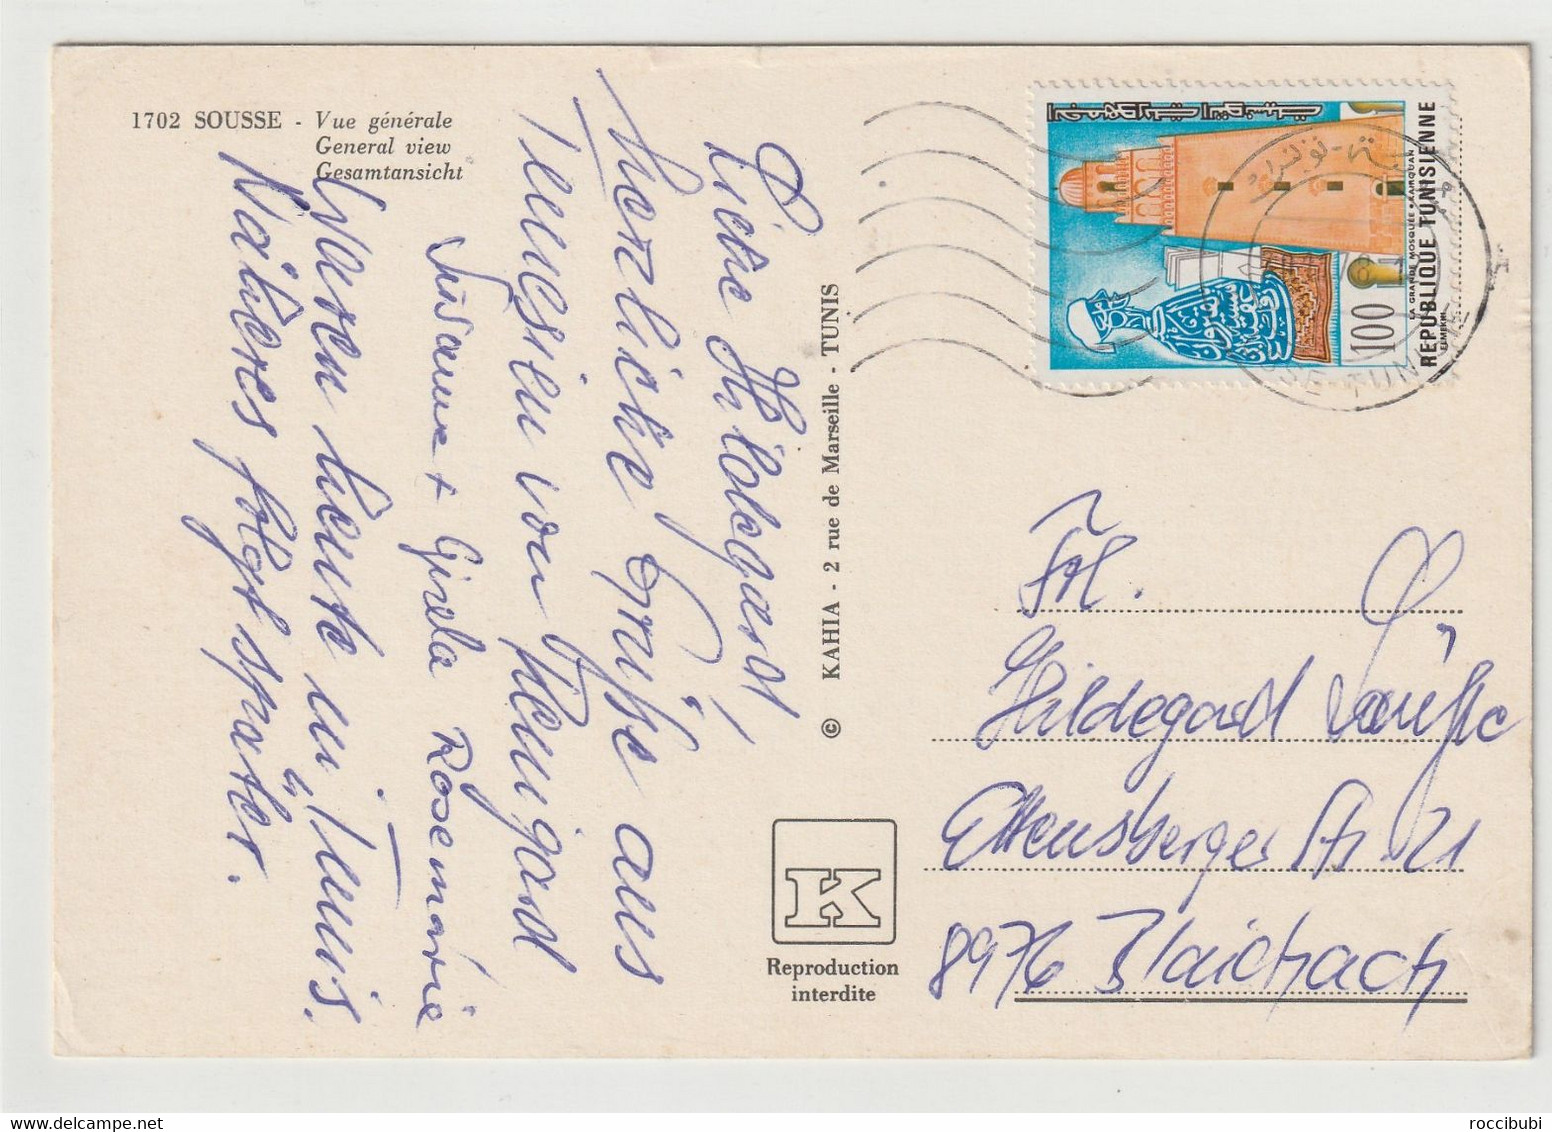 1702 SOUSSE - Vue générale
General view
Gesamtansicht
Liebe Hildegard,
herzliche Grüße aus
Tunesien von Irmgard
Susanne + Gisela Rosemarie
Waren heute in Tunis.
Näheres folgt später.
© KAHIA - 2 rue de Marseille - TUNIS
K
Reproduction
interdite
100
LA GRANDE MOSQUÉE KAIROUAN
REPUBLIQUE TUNISIENNE
ELMEKKI
Frl.
Hildegard
Ettensberger Str. 21
8976 Blaichach
roccibubi